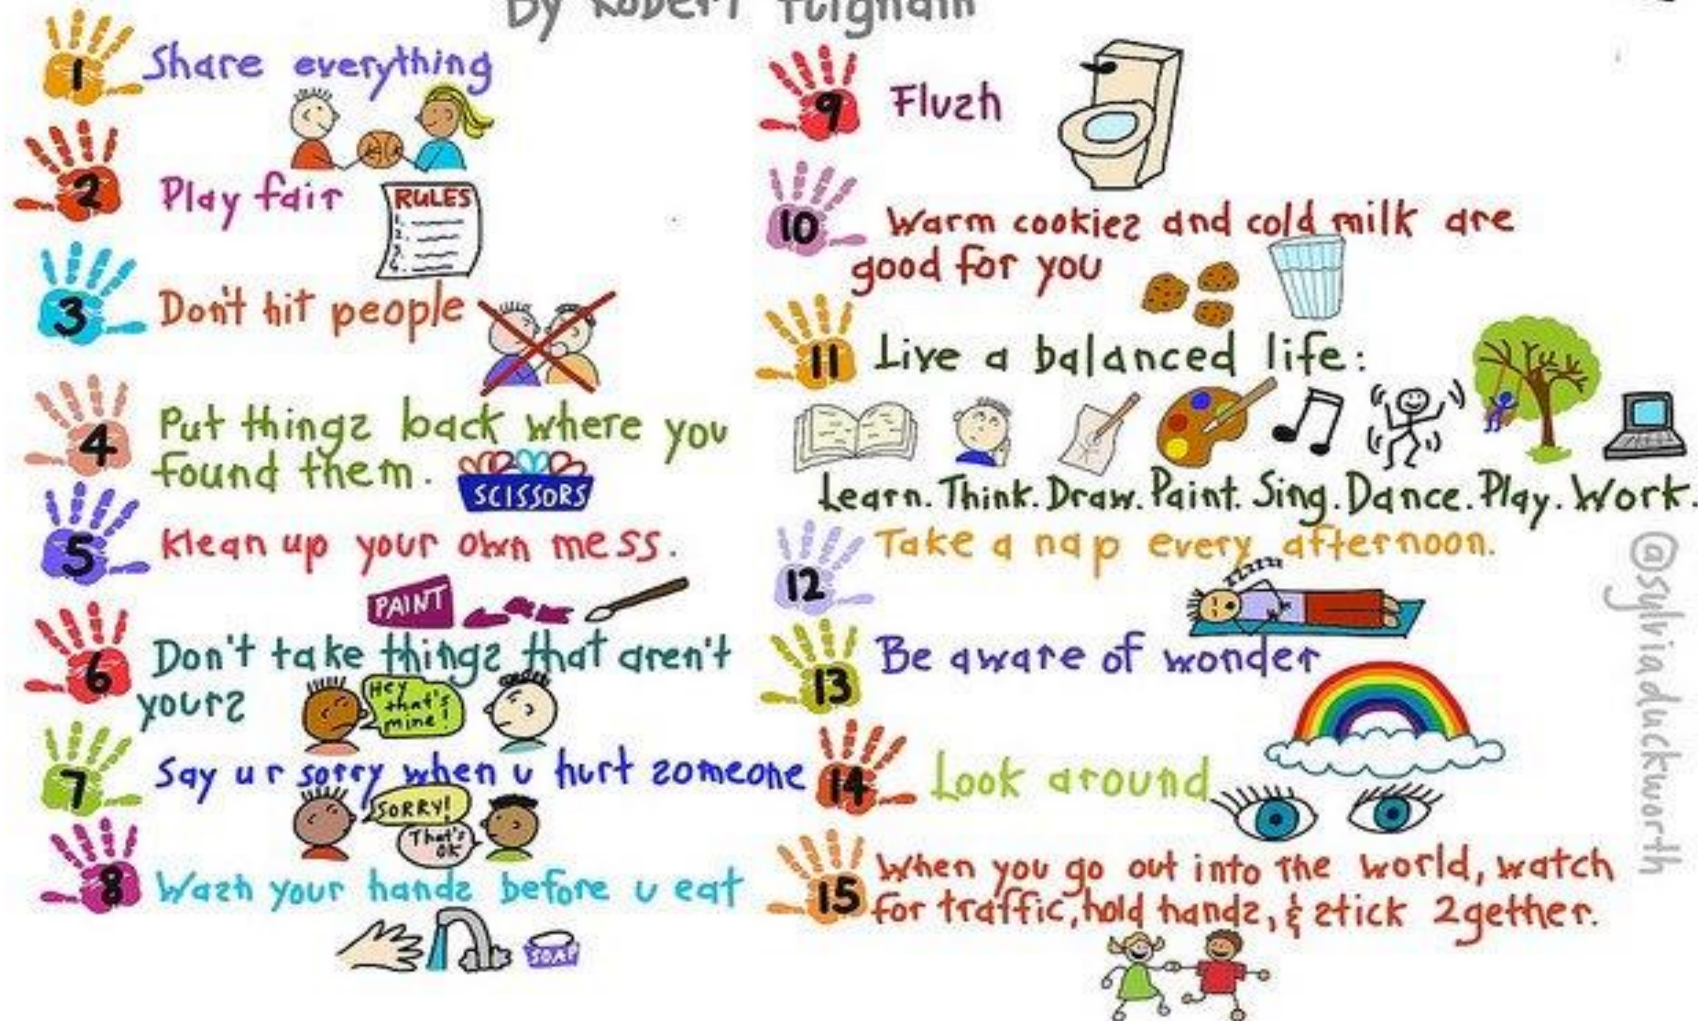 By Robert Fulghum
1 Share everything
2 Play fair
RULES
1.
2.
3.
4.
3 Don't hit people
4 Put things back where you
found them.
SCISSORS
5 Klean up your own mess.
PAINT
6 Don't take things that aren't
yours
Hey
that's
mine!
7 Say u r sorry when u hurt someone
SORRY!
That's
OK
8 Wash your hands before u eat
SOAP
9 Flush
10 Warm cookies and cold milk are
good for you
11 Live a balanced life:
Learn. Think. Draw. Paint. Sing. Dance. Play. Work.
12 Take a nap every afternoon.
zzzzz
13 Be aware of wonder
14 Look around
15 When you go out into the world, watch
for traffic, hold hands, & stick 2gether.
@sylviaduckworth